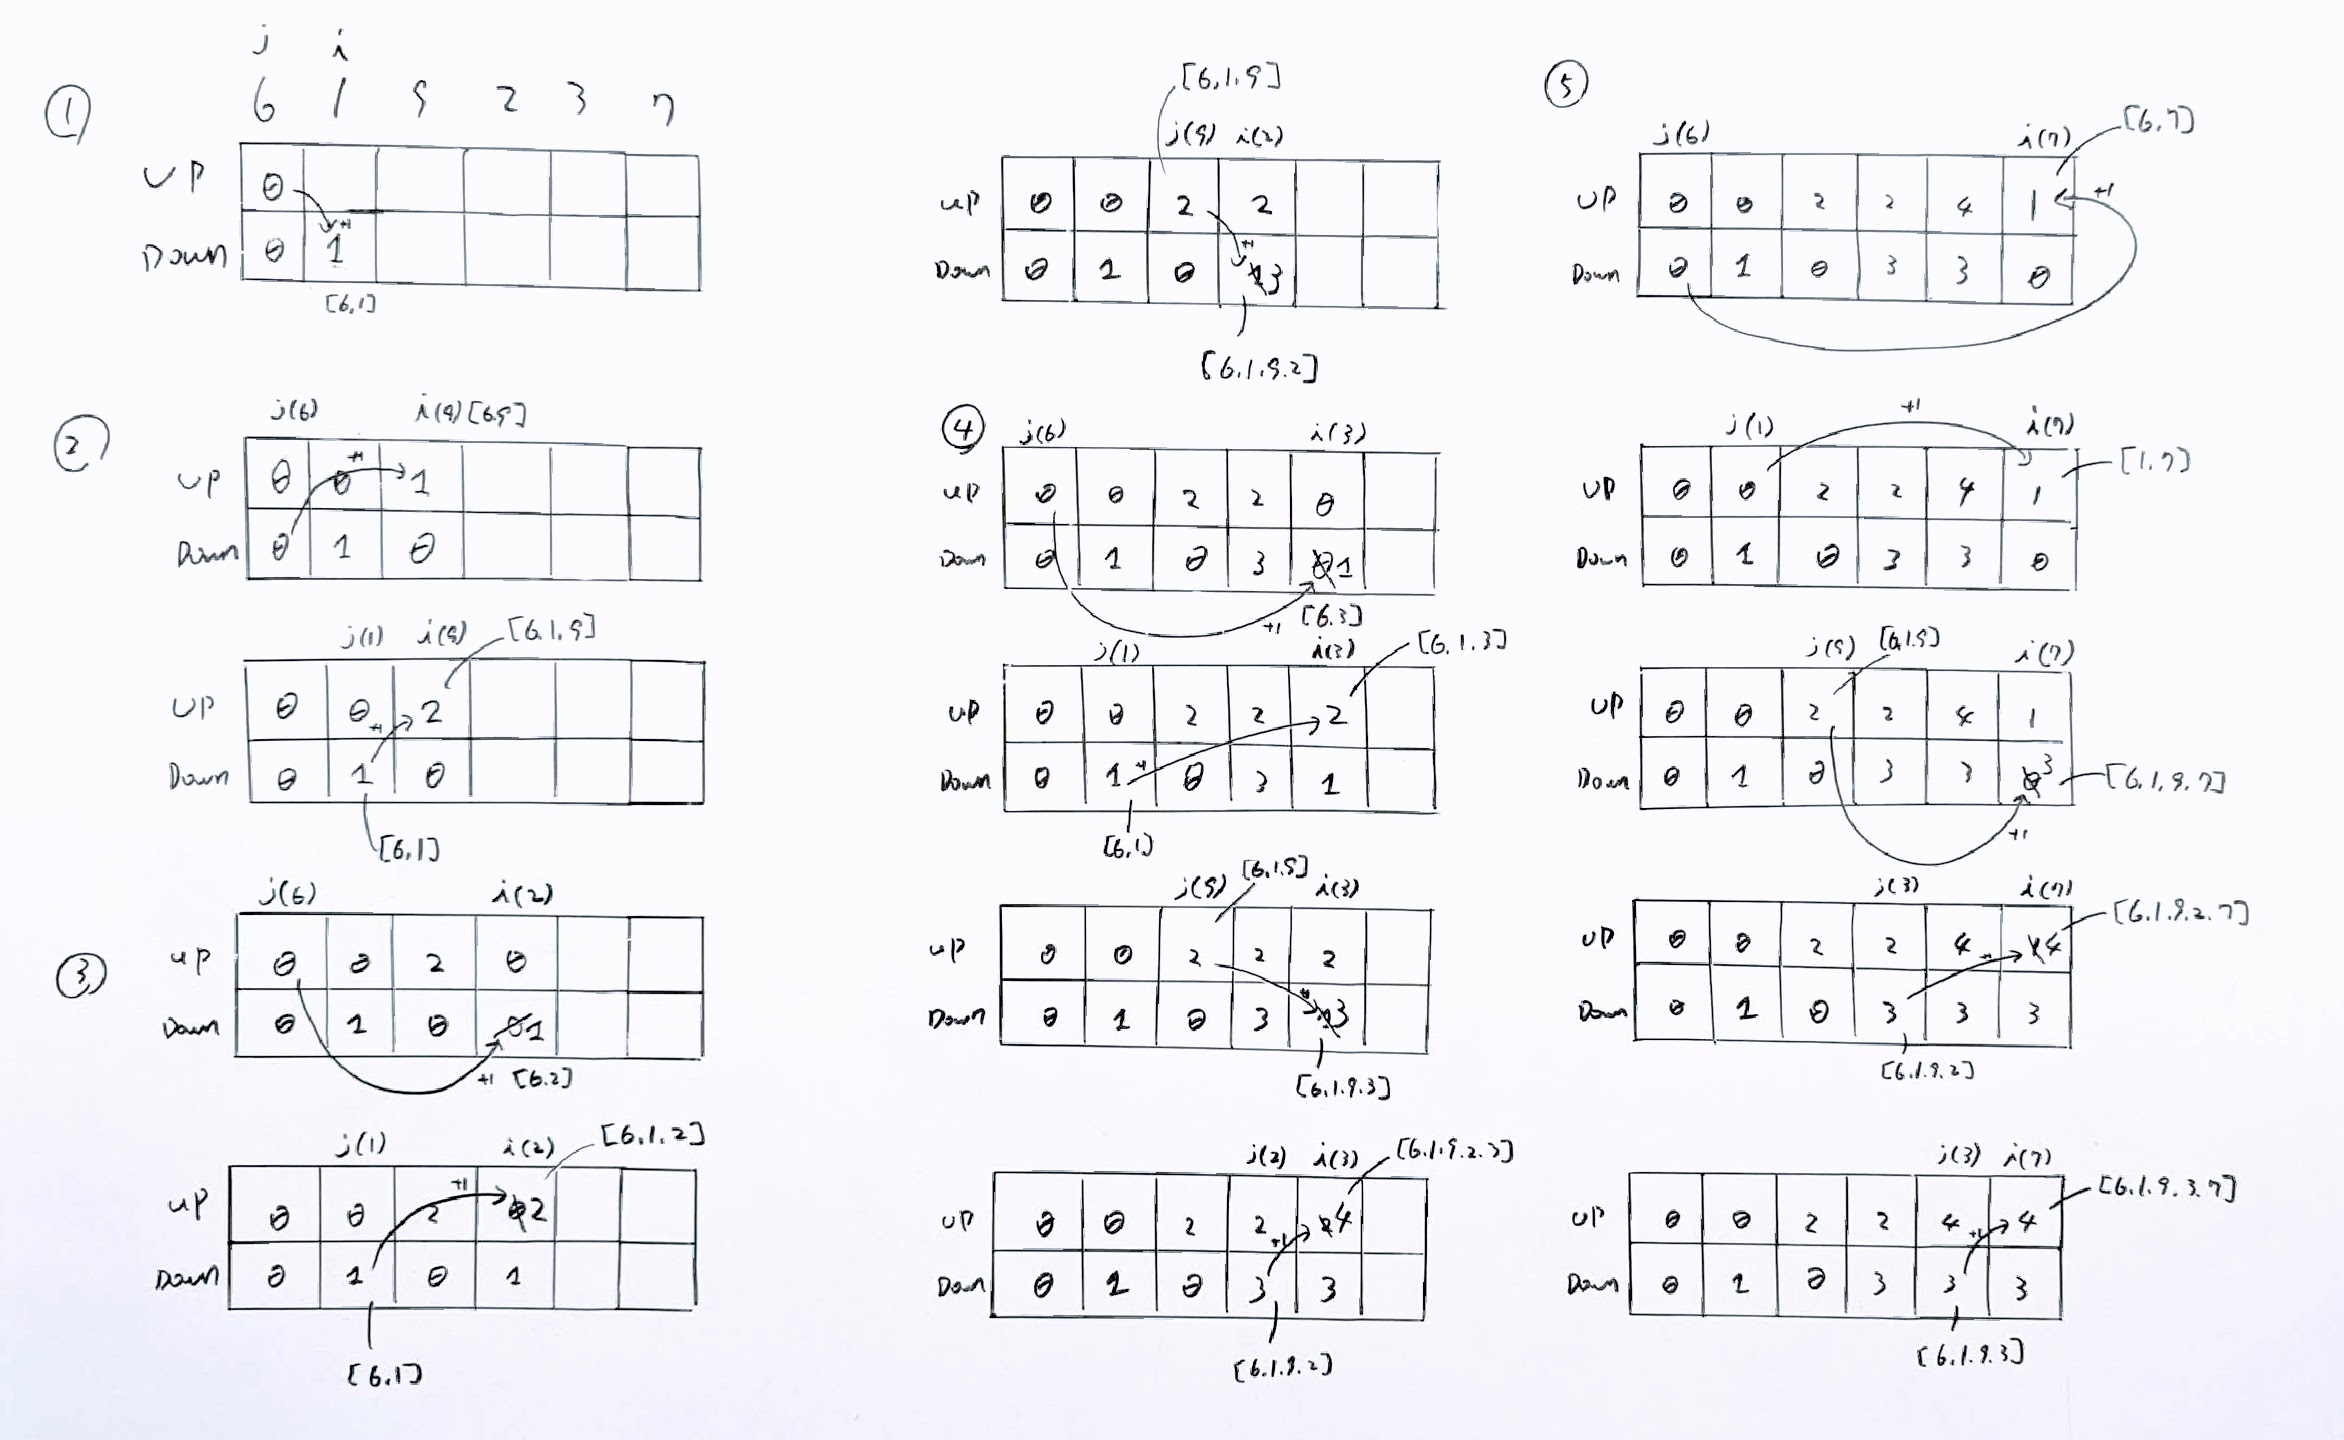 ①
j i
6 1 9 2 3 7
UP 0
Down 0 1
+1
[6,1]
②
j(6) i(9) [6.9]
UP 0 0 1
+1
Down 0 1 0
j(1) i(9) [6.1.9]
UP 0 0 2
+1
Down 0 1 0
[6,1]
③
j(6) i(2)
UP 0 0 2 0
Down 0 1 0 0 1
+1 [6.2]
j(1) i(2) [6.1.2]
+1
UP 0 0 2 0 2
Down 0 1 0 1
[6.1]
[6.1.9]
j(9) i(2)
UP 0 0 2 2
+1
Down 0 1 0 1 3
[6.1.9.2]
④
j(6) i(3)
UP 0 0 2 2 0
Down 0 1 0 3 0 1
+1 [6.3]
j(1) i(3) [6.1.3]
UP 0 0 2 2 2
+1
Down 0 1 0 3 1
[6,1]
j(9) [6.1.9] i(3)
UP 0 0 2 2 2
+1
Down 0 1 0 3 1 3
[6.1.9.3]
j(2) i(3) [6.1.9.2.3]
UP 0 0 2 2 2 4
+1
Down 0 1 0 3 3
[6.1.9.2]
⑤
j(6) i(7) [6.7]
UP 0 0 2 2 4 1 +1
Down 0 1 0 3 3 0
j(1) +1 i(7)
UP 0 0 2 2 4 1 [1.7]
Down 0 1 0 3 3 0
j(9) [6.1.9] i(7)
UP 0 0 2 2 4 1
Down 0 1 0 3 3 0 3 [6.1.9.7]
+1
j(3) i(7) [6.1.9.2.7]
UP 0 0 2 2 4 1 4
+1
Down 0 1 0 3 3 3
[6.1.9.2]
j(3) i(7) [6.1.9.3.7]
UP 0 0 2 2 4 4
+1
Down 0 1 0 3 3 3
[6.1.9.3]